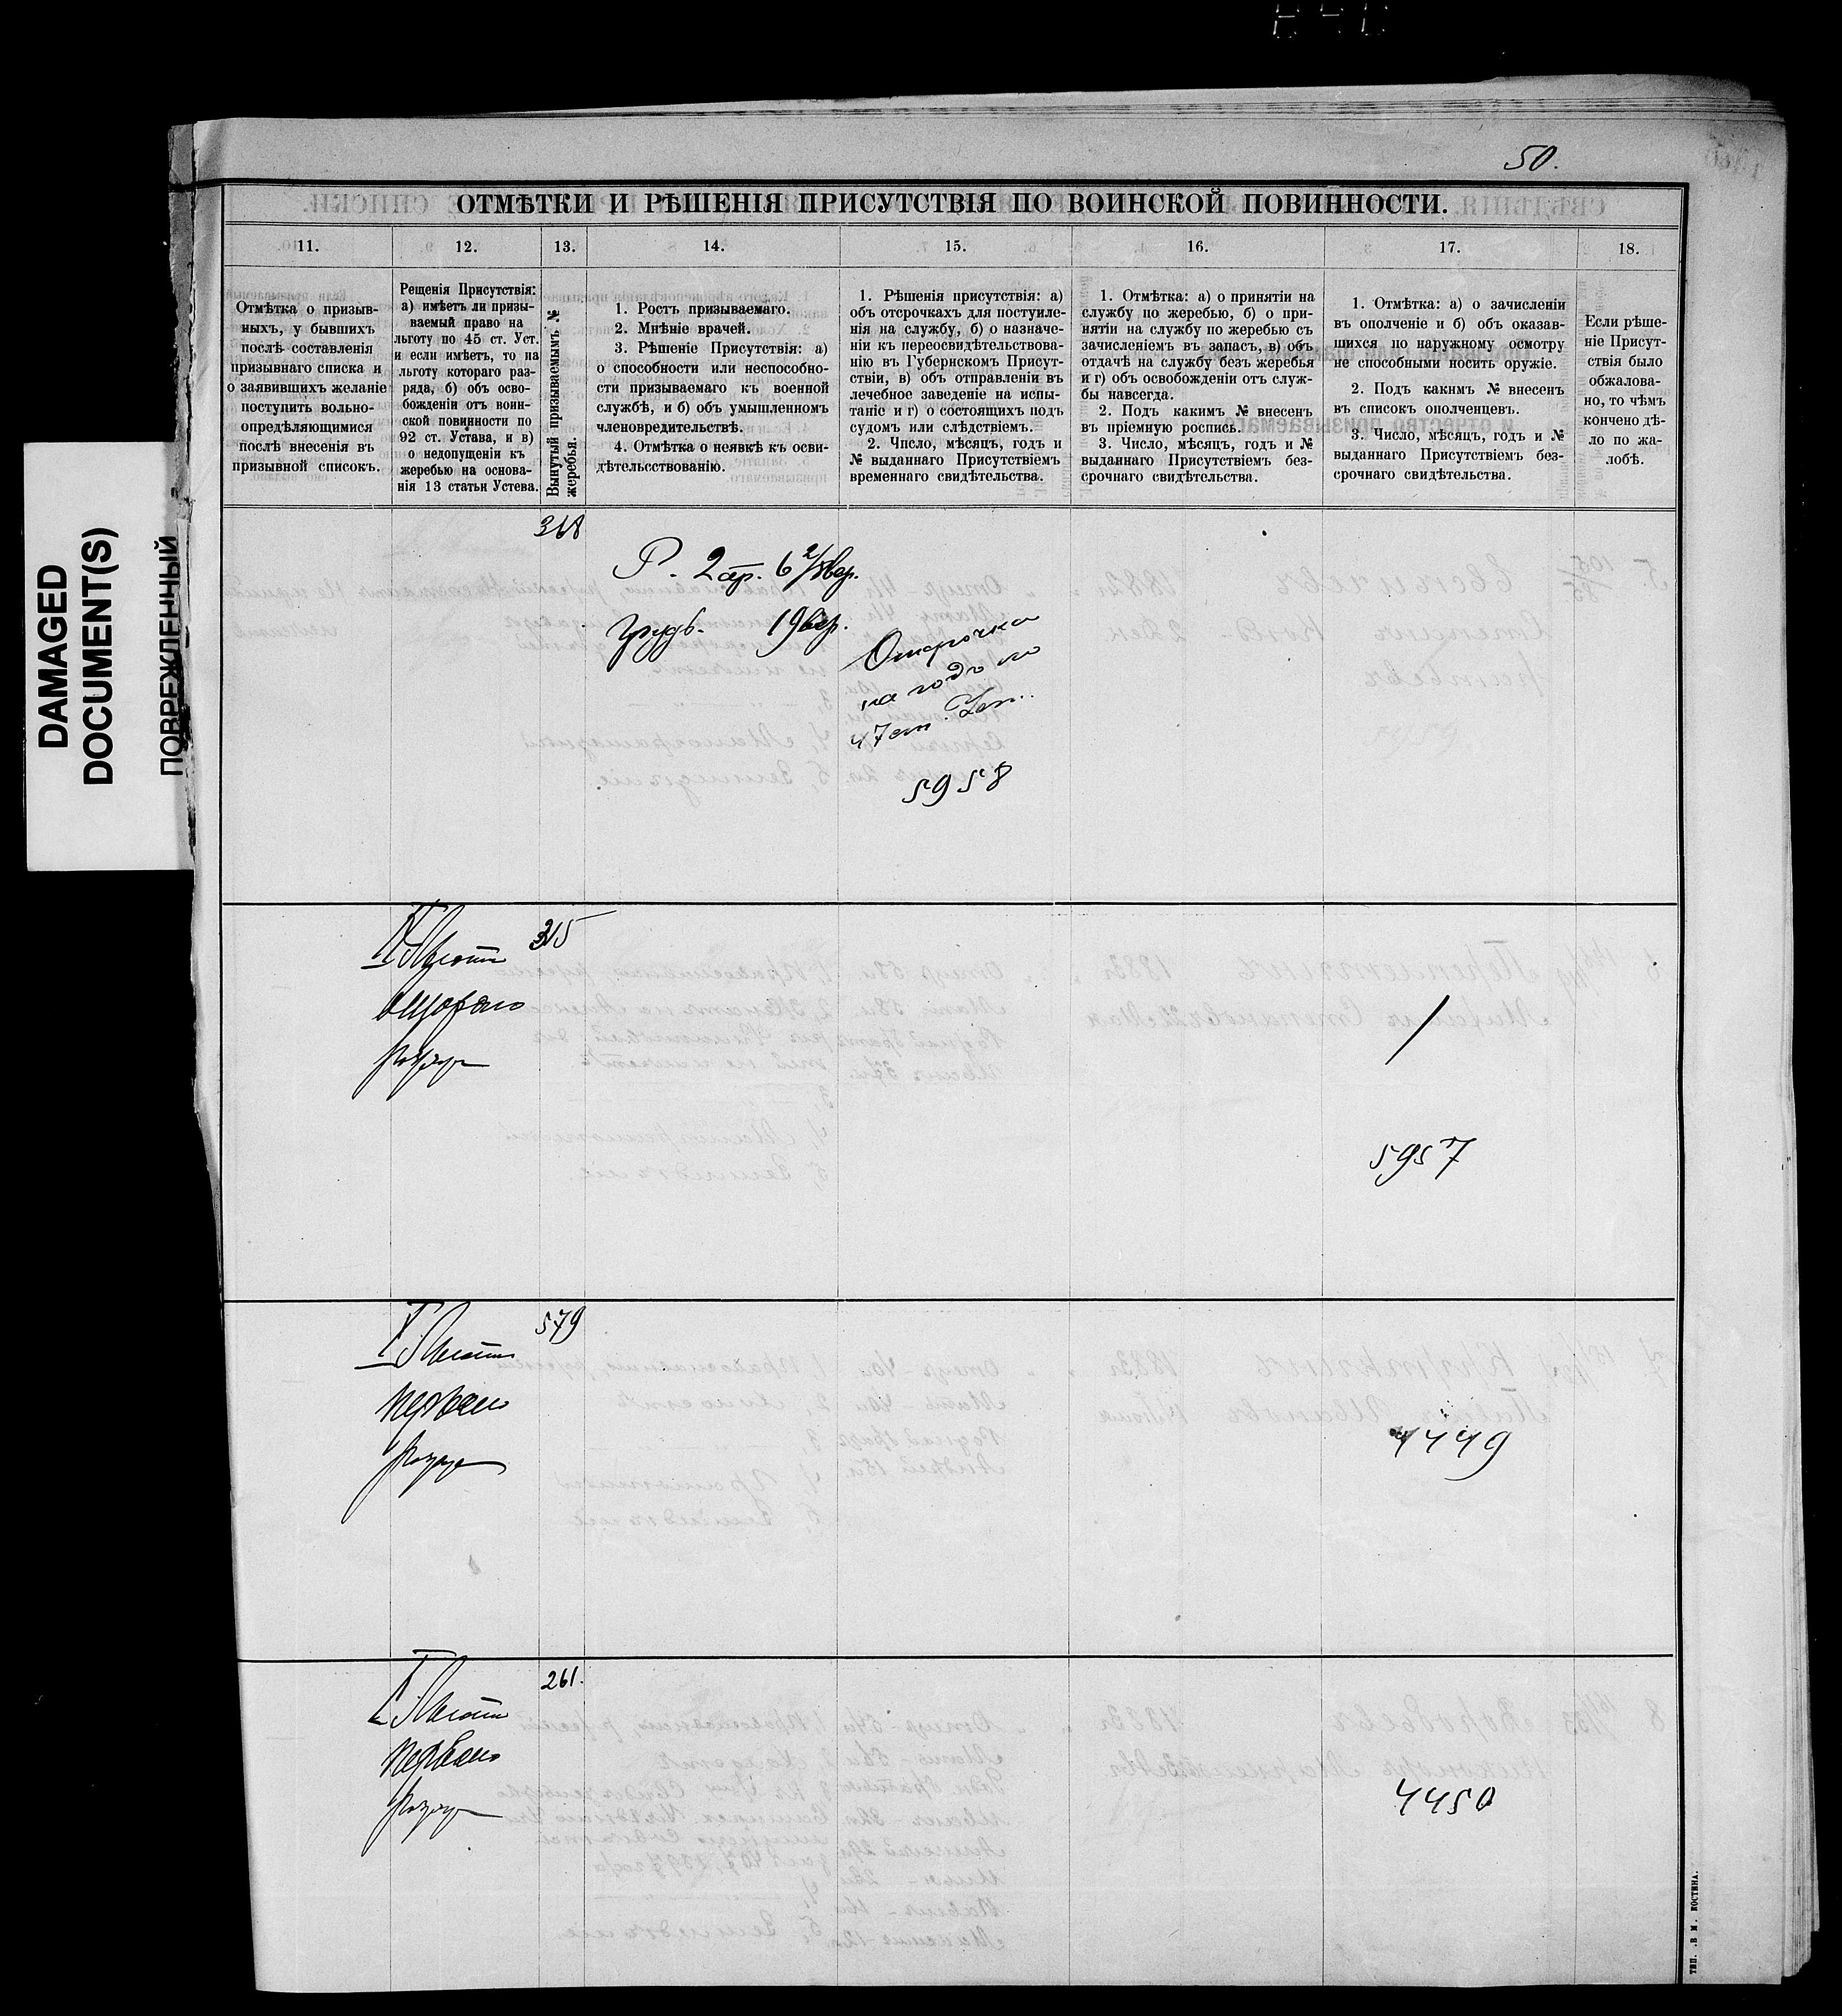 50.
ОТМѢТКИ И РѢШЕНІЯ ПРИСУТСТВІЯ ПО ВОИНСКОЙ ПОВИННОСТИ.
11. 12. 13. 14. 15. 16. 17. 18.
Отмѣтка о призыв-
ныхъ, у бывшихъ
послѣ составленія
призывнаго списка и
о заявившихъ желаніе
поступить вольно-
опредѣляющимися
послѣ внесенія въ
призывной списокъ.
Рещенія Присутствія:
а) имѣетъ ли призы-
ваемый право на
льготу по 45 ст. Уст.
и если имѣетъ, то на
льготу котораго раз-
ряда, б) объ осво-
божденіи отъ воин-
ской повинности по
92 ст. Устава, и в)
о недопущеніи къ
жеребью на основа-
нія 13 статьи Устева.
Вынутый призываемымъ №
жеребья.
1. Ростъ призываемаго.
2. Мнѣніе врачей.
3. Рѣшеніе Присутствія: а)
о способности или неспособно-
сти призываемаго къ военной
службѣ, и б) объ умышленномъ
членовредительствѣ.
4. Отмѣтка о неявкѣ къ осви-
дѣтельсствованію.
1. Рѣшенія присутствія: а)
объ отсрочкахъ для поступле-
нія на службу, б) о назначе-
ніи къ переосвидѣтельствова-
нію въ Губернскомъ Присут-
ствіи, в) объ отправленіи въ
лечебное заведеніе на испы-
таніе и г) о состоящихъ подъ
судомъ или слѣдствіемъ.
2. Число, мѣсяцъ, годъ и
№ выданнаго Присутствіемъ
временнаго свидѣтельства.
1. Отмѣтка: а) о принятіи на
службу по жеребью, б) о при-
нятіи на службу по жеребью съ
зачисленіемъ въ запасъ, в) объ
отдачѣ на службу безъ жеребья
и г) объ освобожденіи отъ служ-
бы навсегда.
2. Подъ какимъ № внесенъ
въ пріемную роспись.
3. Число, мѣсяцъ, годъ и №
выданнаго Присутствіемъ без-
срочнаго свидѣтельства.
1. Отмѣтка: а) о зачисленіи
въ ополченіе и б) объ оказав-
шихся по наружному осмотру
не способными носить оружіе.
2. Подъ какимъ № внесенъ
въ списокъ ополченцевъ.
3. Число, мѣсяцъ, годъ и №
выданнаго Присутствіемъ без-
срочнаго свидѣтельства.
Если рѣше-
ніе Присут-
ствія было
обжалова-
но, то чѣмъ
кончено дѣ-
ло по жа-
лобѣ.
DAMAGED
DOCUMENT(S)
ПОВРЕЖДЕННЫЙ
368
Р. 2 ар. 6 2/8 вер.
грудь. 19 вер.
Отсрочка
на годъ по
47 ст.
5958
315
Льготн
второго
разряд
5957
579
Льготн
перваго
разряд
4449
261.
Льготн
перваго
разряд
4450
ТИП. В. М. КОСТИНА.